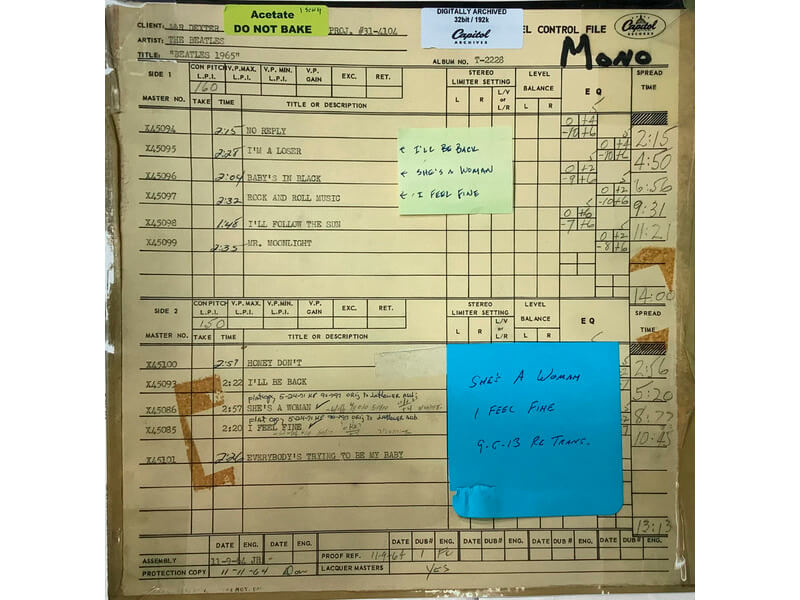 CLIENT: DEXTER
Acetate
DO NOT BAKE
PROJ. #31-4104
DIGITALLY ARCHIVED
32bit / 192k
Capitol
ARCHIVES
CONTROL FILE
Capitol
RECORDS
ARTIST: THE BEATLES
TITLE: "BEATLES 1965"
ALBUM NO. T-2228
MONO
SIDE 1
CON PITCH L.P.I. V.P. MAX. L.P.I. V.P. MIN. L.P.I. V.P. GAIN EXC. RET.
160
STEREO LIMITER SETTING L R L/V or L/R
LEVEL BALANCE L R
EQ
SPREAD TIME
MASTER NO. TAKE TIME TITLE OR DESCRIPTION
X45094 2:15 NO REPLY 0 +4 -10 +6 2:15
X45095 2:28 I'M A LOSER 0 +4 -10 +6 4:50
X45096 2:04 BABY'S IN BLACK 0 +2 -9 +6 6:56
X45097 2:32 ROCK AND ROLL MUSIC 0 +2 -10 +6 9:31
X45098 1:48 I'LL FOLLOW THE SUN 0 +6 -7 +6 11:21
X45099 2:35 MR. MOONLIGHT 0 +2 -8 +6
14:00
← I'LL BE BACK
← SHE'S A WOMAN
← I FEEL FINE
SIDE 2
CON PITCH L.P.I. V.P. MAX. L.P.I. V.P. MIN. L.P.I. V.P. GAIN EXC. RET.
150
STEREO LIMITER SETTING L R L/V or L/R
LEVEL BALANCE L R
EQ
SPREAD TIME
MASTER NO. TAKE TIME TITLE OR DESCRIPTION
X45100 2:57 HONEY DON'T 2:56
X45093 2:22 I'LL BE BACK 5:20
X45086 2:57 SHE'S A WOMAN ✓
X45085 2:20 I FEEL FINE ✓ 10:45
X45101 2:26 EVERYBODY'S TRYING TO BE MY BABY
13:13
SHE'S A WOMAN
I FEEL FINE
9-6-13 RE TRANS.
DATE ENG. DATE ENG. DATE DUB# ENG. DATE DUB# ENG. DATE DUB# ENG.
ASSEMBLY 11-9-64 JR
PROOF REF. 11-9-64 1
PROTECTION COPY 11-11-64
LACQUER MASTERS YES